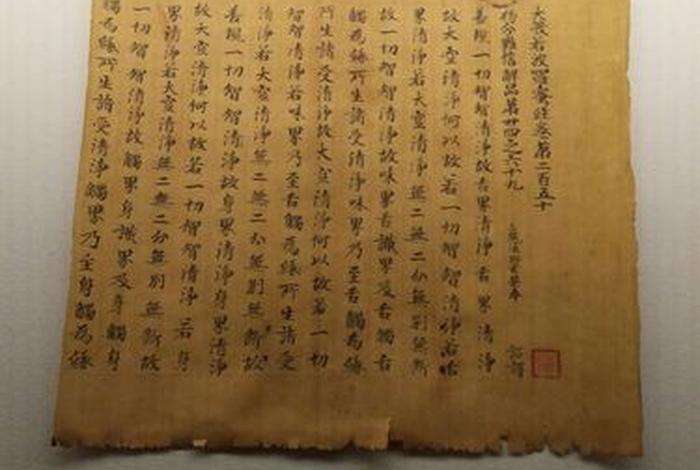 大般若波羅蜜多經卷第二百五十
初分難信解品第卅四之六十九 三藏法師玄奘奉 詔譯
善現一切智智清淨故舌界清淨舌界清淨
故大空清淨何以故若一切智智清淨若舌
界清淨若大空清淨無二無二分無別無斷
故一切智智清淨故味界舌識界及舌觸舌
觸為緣所生諸受清淨味界乃至舌觸為緣
所生諸受清淨故大空清淨何以故若一切
智智清淨若味界乃至舌觸為緣所生諸受
清淨若大空清淨無二無二分無別無斷故
善現一切智智清淨故身界清淨身界清淨
故大空清淨何以故若一切智智清淨若身
界清淨若大空清淨無二無二分無別無斷故
一切智智清淨故觸界身識界及身觸身
觸為緣所生諸受清淨觸界乃至身觸為緣